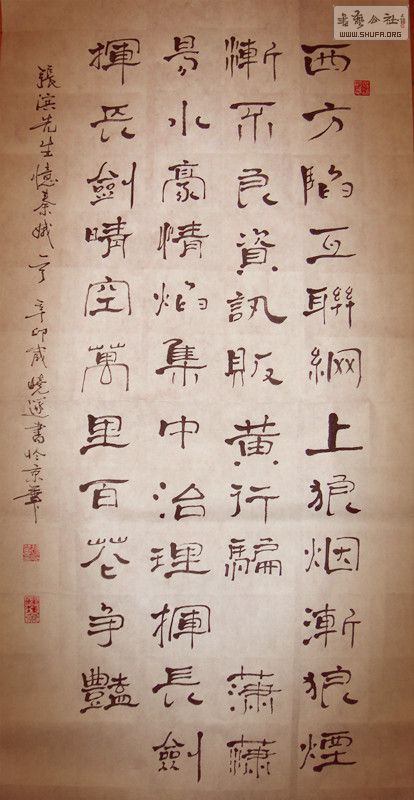 書藝公社
WWW.SHUFA.ORG
西方陷互聯網上狼烟漸狼煙
漸不良資訊販黄行騙 蕭蕭
易水豪情焰集中治理揮長劍
揮長劍晴空萬里百花争豔
張滨先生憶秦娥 辛卯歲曉書於京華